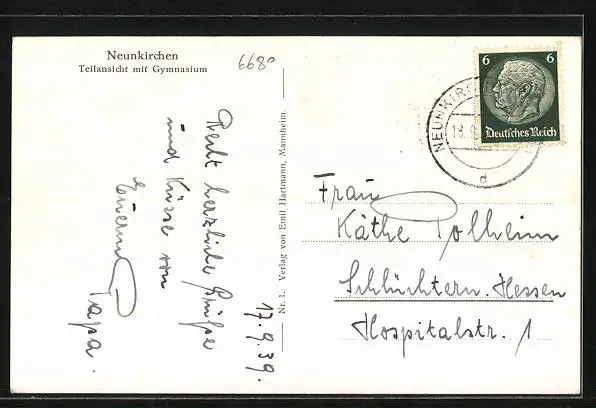 Neunkirchen
Teilansicht mit Gymnasium
6680
Recht herzliche Grüße
und Küsse von
Euerm
Papa.
17.9.39.
Nr. 1. Verlag von Emil Hartmann, Mannheim.
NEUNKIRC
18.9.
d
6 6
Deutsches Reich
Frau
Käthe Polheim
Schlüchtern. Hessen
Hospitalstr. 1